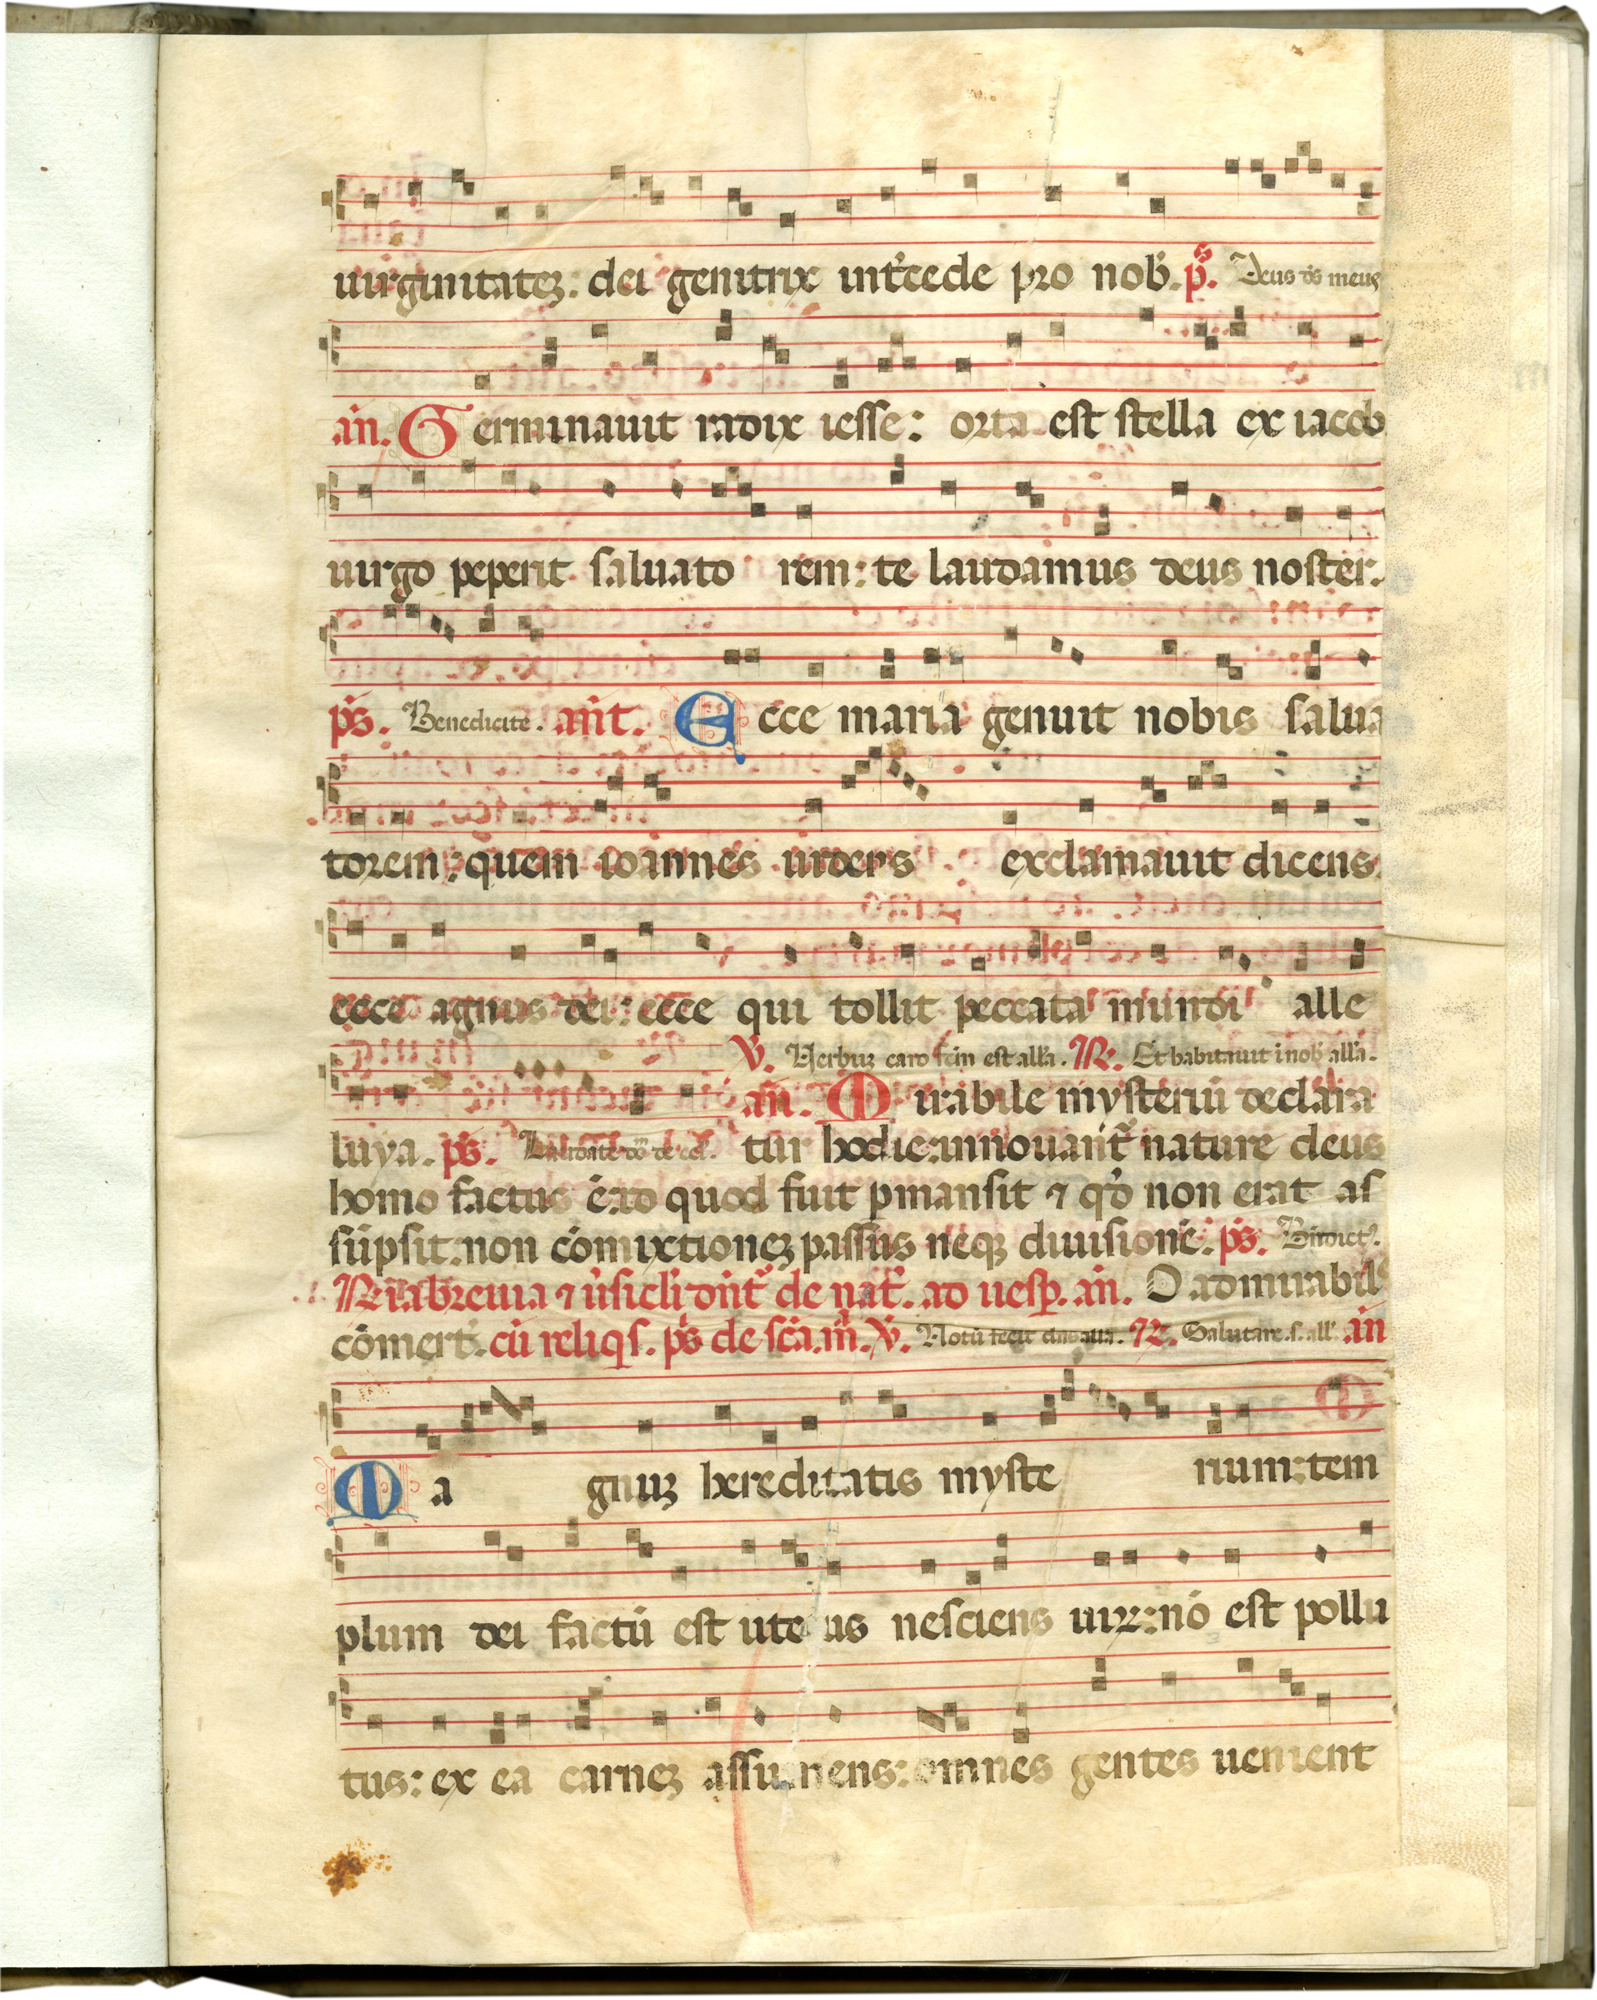 uirginitatẽ: dei genitrix int'cede pro nob'. p̃s. Deus d's meus
añ. Germinauit radix iesse: orta est stella ex iacob
uirgo peperit saluato rem: te laudamus deus noster.
p̃s. Benedicite. añt. Ecce maria genuit nobis salua
torem: quem ioannes uidens exclamauit dicens
ecce agnus dei: ecce qui tollit peccata mundi alle
V̓. Verbuʒ caro fc̃m est all'a. R̓. Et habitauit i nob' all'a.
añ. Mirabile mysteriũ declara
luya. p̃s. Laudate dõ de cel'. tur hodie: innouant᷑ nature deus
homo factus ẽ: id quod fuit pmansit ⁊ qd̓ non erat as
sũpsit: non cõmixtioneʒ passus neqʒ diuisionẽ. p̃s. Bñdict᷑.
R̓ia breuia ⁊ ũsicli dñt᷑ de nat̓. ad uesp̱. añ. O admirabil'
cõmert̓. cũ reliqs. p̃s de sc̃a. m̃. V̓. Notũ fecit dñs alla. R̓. Salutare. s. all'. añ
Magnuʒ hereditatis myste rium: tem
plum dei factũ est ute us nesciens uirʒ: nõ est pollu
tus: ex ea carneʒ assumens: omnes gentes uenient